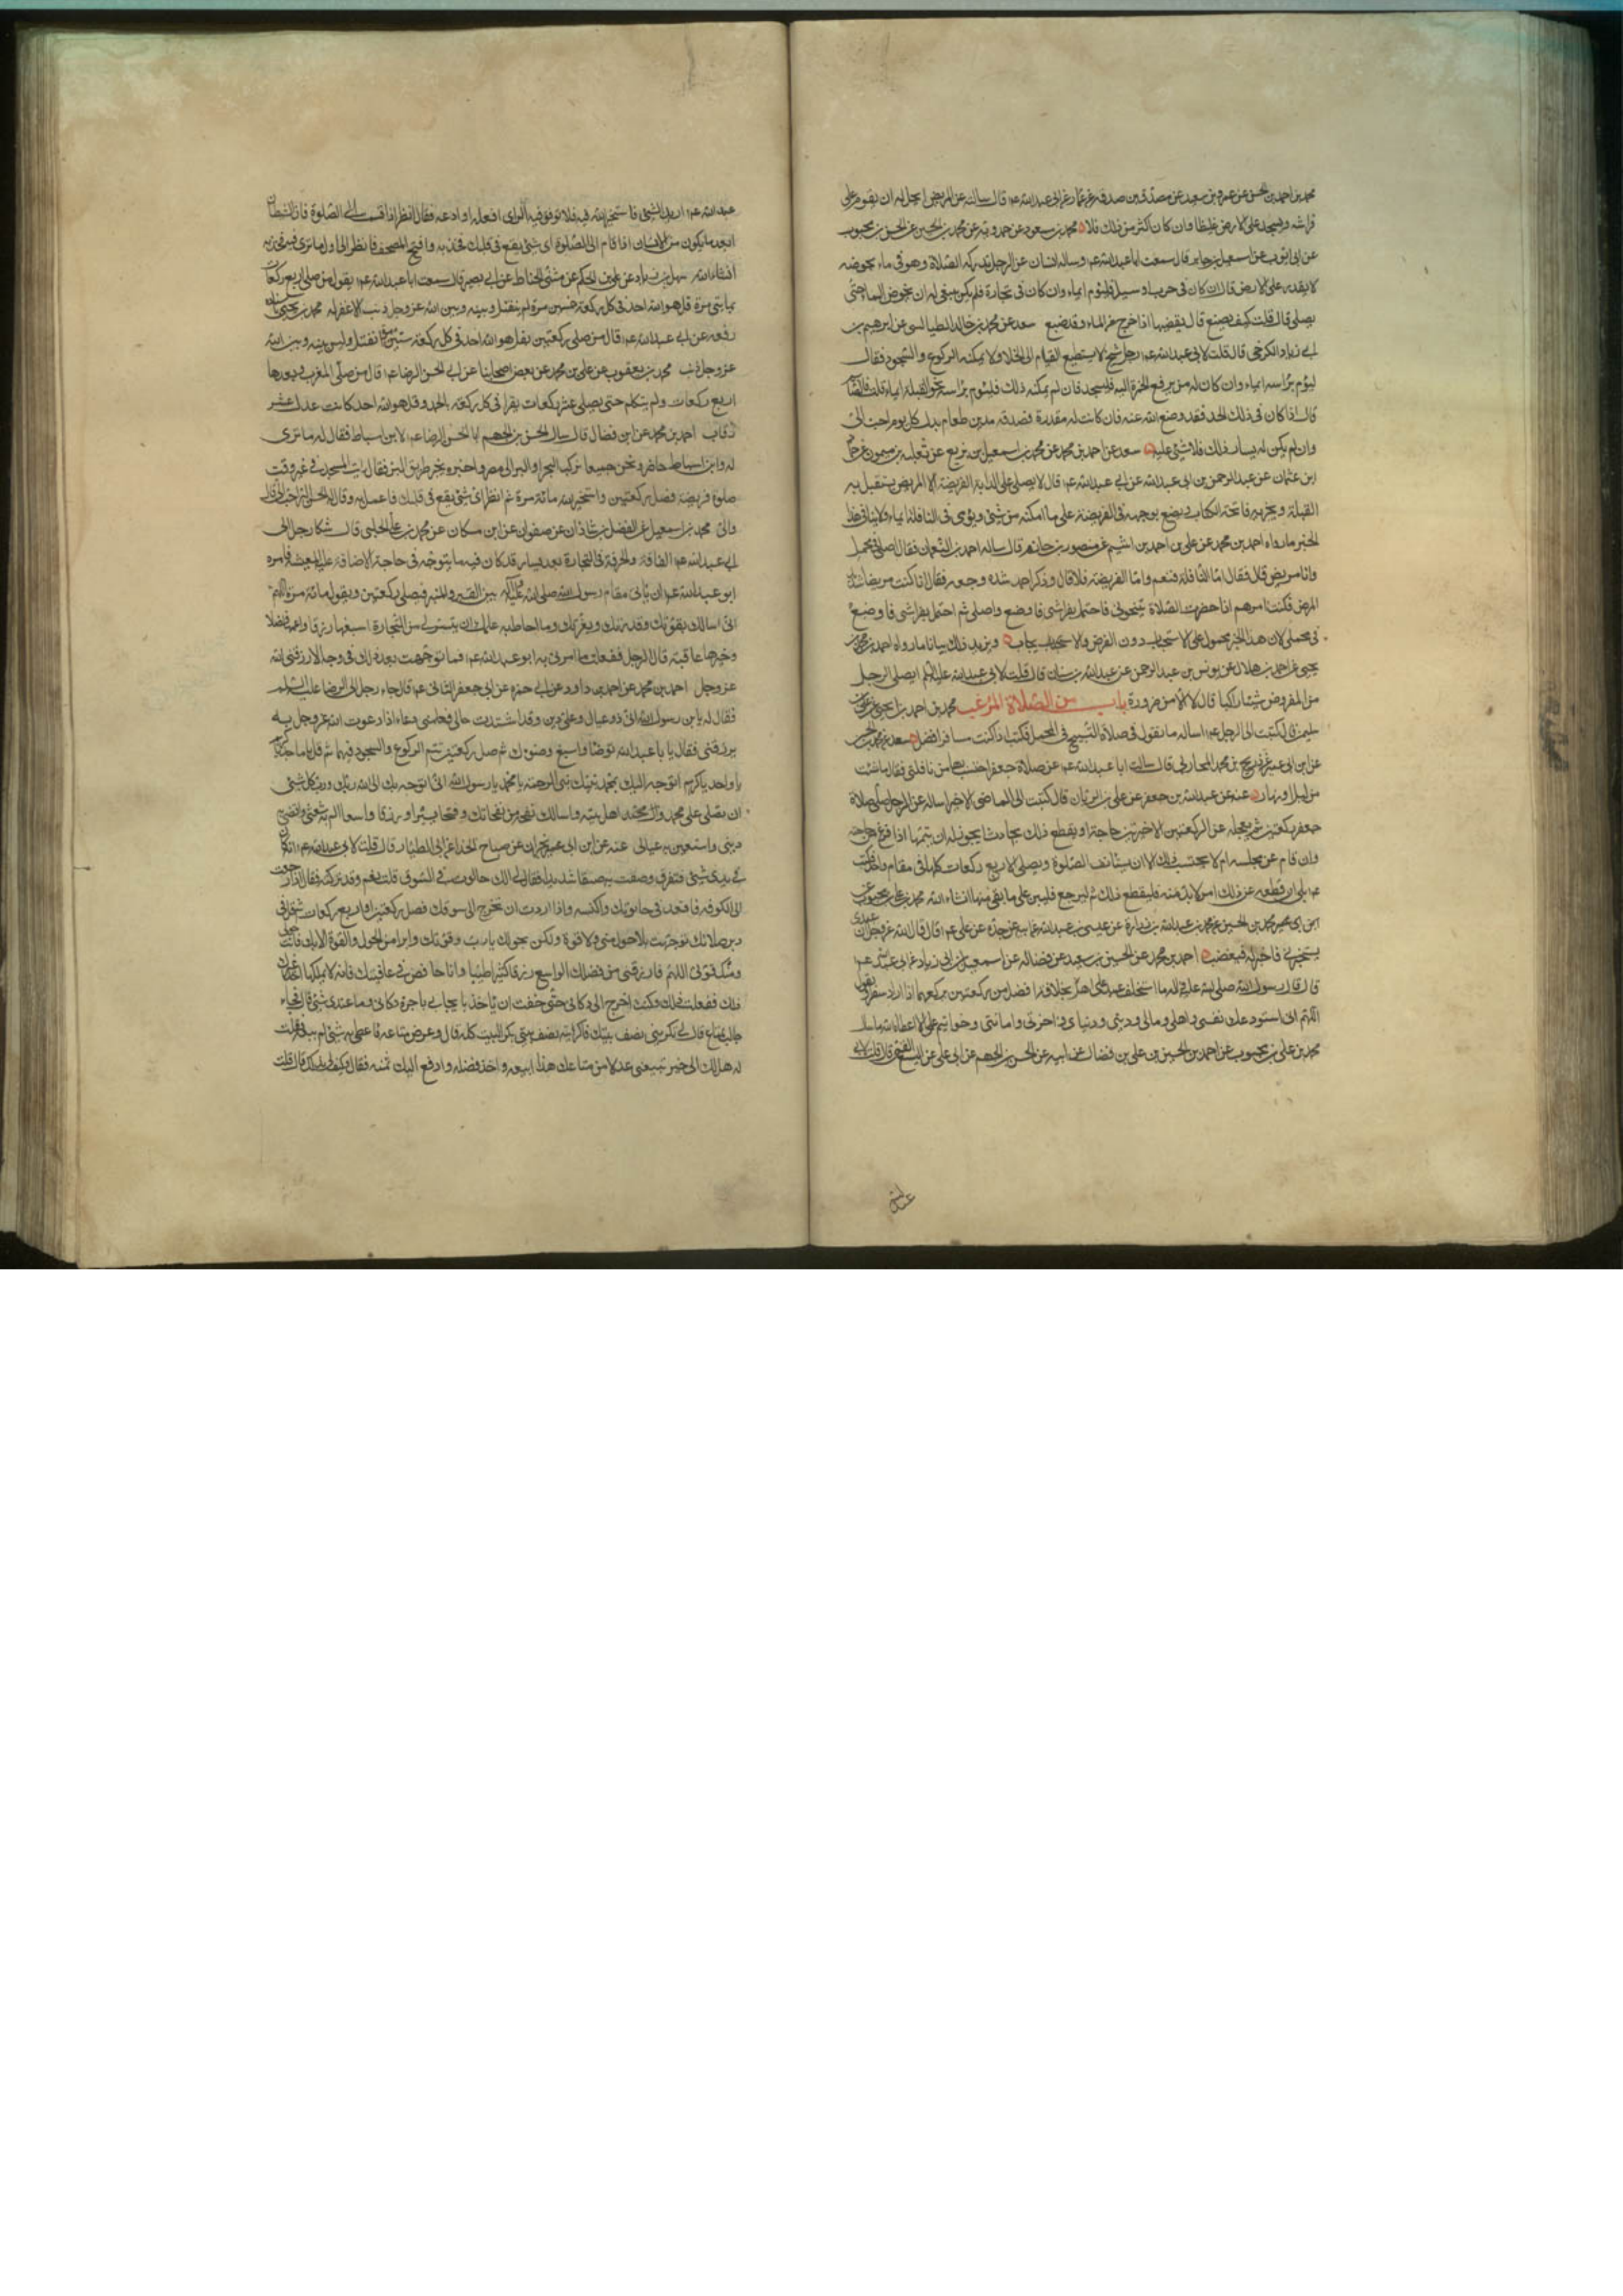 محمد بن احمد بن الحسن عن عمرو بن سعيد عن مصدق بن صدقه عن عمار عن ابى عبدالله عم قال سالته عن المريض ايحل له ان يقوم على
فراشه ويسجد على الارض غليظا وان كان اكثر من ذلك فلا محمد بن مسعود عن حمدويه عن محمد بن الحسين عن الحسن بن محبوب
عن ابى ايوب عن اسمعيل بن جابر قال سمعت ابا عبدالله عم وساله انسان عن الرجل تدركه الصلاة وهو فى ماء يخوضه
لا يقدر على الارض قال ان كان فى حرب او سبيل فليوم ايماء وان كان فى تجارة فلم يكن ينبغى له ان يخوض الماء حتى
يصلى قال قلت كيف يصنع قال يقضيها اذا خرج من الماء وقد ضيع سعد عن محمد بن خالد الطيالسى عن ابرهيم بن
ابى زياد الكرخى قال قلت لابى عبدالله عم رجل شيخ لا يستطيع القيام الى الخلا ولا يمكنه الركوع والسجود فقال
ليوم براسه ايماء وان كان له من يرفع الخمرة اليه فليسجد فان لم يمكنه ذلك فليوم براسه نحو القبلة ايماء قلت فالصيام
قال اذا كان فى ذلك الحد فقد وضع الله عنه فان كانت له مقدرة فصدقه مد من طعام بدل كل يوم احب الى
وان لم يكن له يسار ذلك فلا شئ عليه سعد عن احمد بن محمد عن محمد بن اسمعيل بن بزيع عن ثعلبه بن ميمون عن حماد
ابن عثمان عن عبد الرحمن بن ابى عبدالله عن ابى عبدالله عم قال لا يصلى على الدابة الفريضة الا المريض يستقبل به
القبلة ويجزيه فاتحة الكتاب ويضع بوجهه فى الفريضة على ما امكنه من شئ ويومى فى النافلة ايماء ولا ينافى هذا
الخبر ما رواه احمد بن محمد عن على بن احمد بن اشيم عن منصور بن حازم قال ساله احمد بن النعمان فقال اصلى فى محملى
وانا مريض قال فقال اما النافلة فنعم واما الفريضة فلا قال وذكر احمد شدة وجعه فقال انا كنت مريضا شديد
المرض فكنت امرهم اذا حضرت الصلاة ينحونى فاحتمل بفراشى فاوضع واصلى ثم احتمل بفراشى فاوضع
فى محملى لان هذا الخبر محمول على الاستحباب دون الفرض والايجاب ويزيد ذلك بيانا ما رواه احمد بن محمد بن
يحيى عن احمد بن هلال عن يونس بن عبد الرحمن عن عبدالله بن سنان قال قلت لابى عبدالله عليه السلم ايصلى الرجل
من المفروض شيئا راكبا قال لا الا من ضرورة باب من الصلاة المرغب محمد بن احمد بن يحيى عن على بن
سليمن قال كتبت الى الرجل عم اساله ما تقول فى صلاة التسبيح فى المحمل فكتب اذا كنت مسافرا فصل سعد عن محمد بن الحسين
عن ابن ابى عمير عن ذريح بن محمد المحاربى قال سالت ابا عبدالله عم عن صلاة جعفر احتسب بها من نافلتى فقال ما شئت
من ليل او نهار عنه عن عبدالله بن جعفر عن على بن الريان قال كتبت الى الماضى الاخير اساله عن الرجل صلى صلاة
جعفر ركعتين ثم يعجله عن الركعتين الاخيرتين حاجة او يقطع ذلك بحادث ايجوز له ان يتمها اذا فرغ من حاجته
وان قام عن مجلسه ام لا يحتسب ذلك الا ان يستانف الصلوة ويصلى الاربع ركعات كلها فى مقام واحد فكتب
عم بلى ان قطعه عن ذلك امر لا بد منه فليقطع ذلك ثم ليرجع فليبن على ما بقى منها انشاء الله محمد بن على بن محبوب عن
ابن ابى عمير محمد بن الحسين عن محمد بن عبدالله بن زرارة عن عيسى بن عبدالله عن ابيه عن جده عن على عم قال قال الله عز وجل ان عبدى
يستخيرنى فاخير له فيغضب احمد بن محمد عن الحسين بن سعيد عن فضاله عن اسمعيل بن ابى زياد عن ابى عبدالله عم
قال قال رسول الله صلى الله عليه واله ما استخلف عبد على اهله بخلافة افضل من ركعتين يركعهما اذا اراد سفرا يقول
اللهم انى استودعك نفسى واهلى ومالى ودينى ودنياى واخرتى وامانتى وخواتيم عملى الا اعطاه الله ما سال
محمد بن على بن محبوب عن احمد بن الحسن بن على بن فضال عن ابيه عن الحسن بن الجهم عن ابى على عن اليسع القمى قال قلت لابى
عبدالله عم اريد الشئ فاستخير الله فيه فلا يوفق فيه الراى افعله او ادعه فقال انظر اذا قمت الى الصلوة فان الشيطان
ابعد ما يكون من الانسان اذا قام الى الصلوة اى شئ يقع فى قلبك فخذ به وافتح المصحف فانظر الى اول ما ترى فيه فخذ به
انشاء الله سهل بن زياد عن على بن الحكم عن مثنى الحناط عن ابى بصير قال سمعت ابا عبدالله عم يقول من صلى اربع ركعات
بمايتى مرة قل هو الله احد فى كل ركعة خمسين مرة لم ينفتل وبينه وبين الله عز وجل ذنب الا غفر له محمد بن يحيى باسناده
رفعه عن ابى عبدالله عم قال من صلى ركعتين بقل هو الله احد فى كل ركعة ستين مرة انفتل وليس بينه وبين الله
عز وجل ذنب محمد بن يعقوب عن على بن محمد عن بعض اصحابنا عن ابى الحسن الرضا عم قال من صلى المغرب وبعدها
اربع ركعات ولم يتكلم حتى يصلى عشر ركعات يقرا فى كل ركعة بالحمد وقل هو الله احد كانت عدل عشر
رقاب احمد بن محمد عن ابن فضال قال سال الحسن بن الجهم ابا الحسن الرضا عم لابن اسباط فقال له ما ترى
له وابن اسباط حاضر ونحن جميعا نركب البحر او البر الى مصر واخبره بخير طريق البر فقال ايت المسجد فى غير وقت
صلوة فريضة فصل ركعتين واستخير الله مائة مرة ثم انظر اى شئ يقع فى قلبك فاعمل به وقال له الحسن البر احب الى قال
والى محمد بن اسمعيل عن الفضل بن شاذان عن صفوان عن ابن مسكان عن محمد بن على الحلبى قال شكا رجل الى
ابى عبدالله عم الفاقة والحرفة فى التجارة بعد يسار قد كان فيه ما يتوجه فى حاجة الا ضاقت عليه المعيشة فامره
ابو عبدالله عم ان ياتى مقام رسول الله صلى الله عليه واله بين القبر والمنبر فيصلى ركعتين ويقول مائة مرة اللهم
انى اسالك بقوتك وقدرتك وبعزتك وما احاط به علمك ان تيسر لى من التجارة اسبغها رزقا واعمها فضلا
وخيرها عاقبة قال الرجل ففعلت ما امرنى به ابو عبدالله عم فما توجهت بعد ذلك فى وجه الا رزقنى الله
عز وجل احمد بن محمد عن احمد بن داود عن ابى حمزه عن ابى جعفر الثانى عم قال جاء رجل الى الرضا عليه السلم
فقال له يا بن رسول الله انى ذو عيال وعلى دين وقد اشتدت حالى فعلمنى دعاء اذا دعوت الله عز وجل به
يرزقنى فقال يا با عبدالله توضا واسبغ وضوءك ثم صل ركعتين تتم الركوع والسجود فيهما ثم قل يا ماجد
يا واحد يا كريم اتوجه اليك بمحمد نبيك نبى الرحمة يا محمد يا رسول الله انى اتوجه بك الى الله ربك ورب كل شئ
ان تصلى على محمد وال محمد اهل بيته واسالك نفحة من نفحاتك وفتحا يسيرا ورزقا واسعا الم به شعثى واقضى به
دينى واستعين به على عيالى عنه عن ابن ابى عمير عن صباح الحذاء عن ابن الطيار قال قلت لابى عبدالله عم انه كان
فى يدى شئ فتفرق وضقت به ضيقا شديدا فقال لى الك حانوت فى السوق قلت نعم وقد تركته فقال اذا رجعت
الى الكوفه فاقعد فى حانوتك واكنسه واذا اردت ان تخرج الى سوقك فصل ركعتين او اربع ركعات ثم قل فى
دبر صلاتك توجهت بلا حول منى ولا قوة ولكن بحولك يا رب وقوتك وابرا من الحول والقوة الا بك فانت حولى
ومنك قوتى اللهم فارزقنى من فضلك الواسع رزقا كثيرا طيبا وانا خافض فى عافيتك فانه لا يملكها احد غيرك
قال ففعلت ذلك وكنت اخرج الى دكانى حتى خفت ان ياخذنى الجابى باجرة دكانى وما عندى شئ قال فجاء
جالب بمتاع قال لى تكرينى نصف بيتك فاكريته نصف بيتى بكرا البيت كله قال وعرض متاعه فاعطى به شئ لم يبعه فقلت
له هل لك الى خير تبيعنى عدلا من متاعك هذا ابيعه واخذ فضله وادفع اليك ثمنه فقال وكيف لى بذلك قال قلت